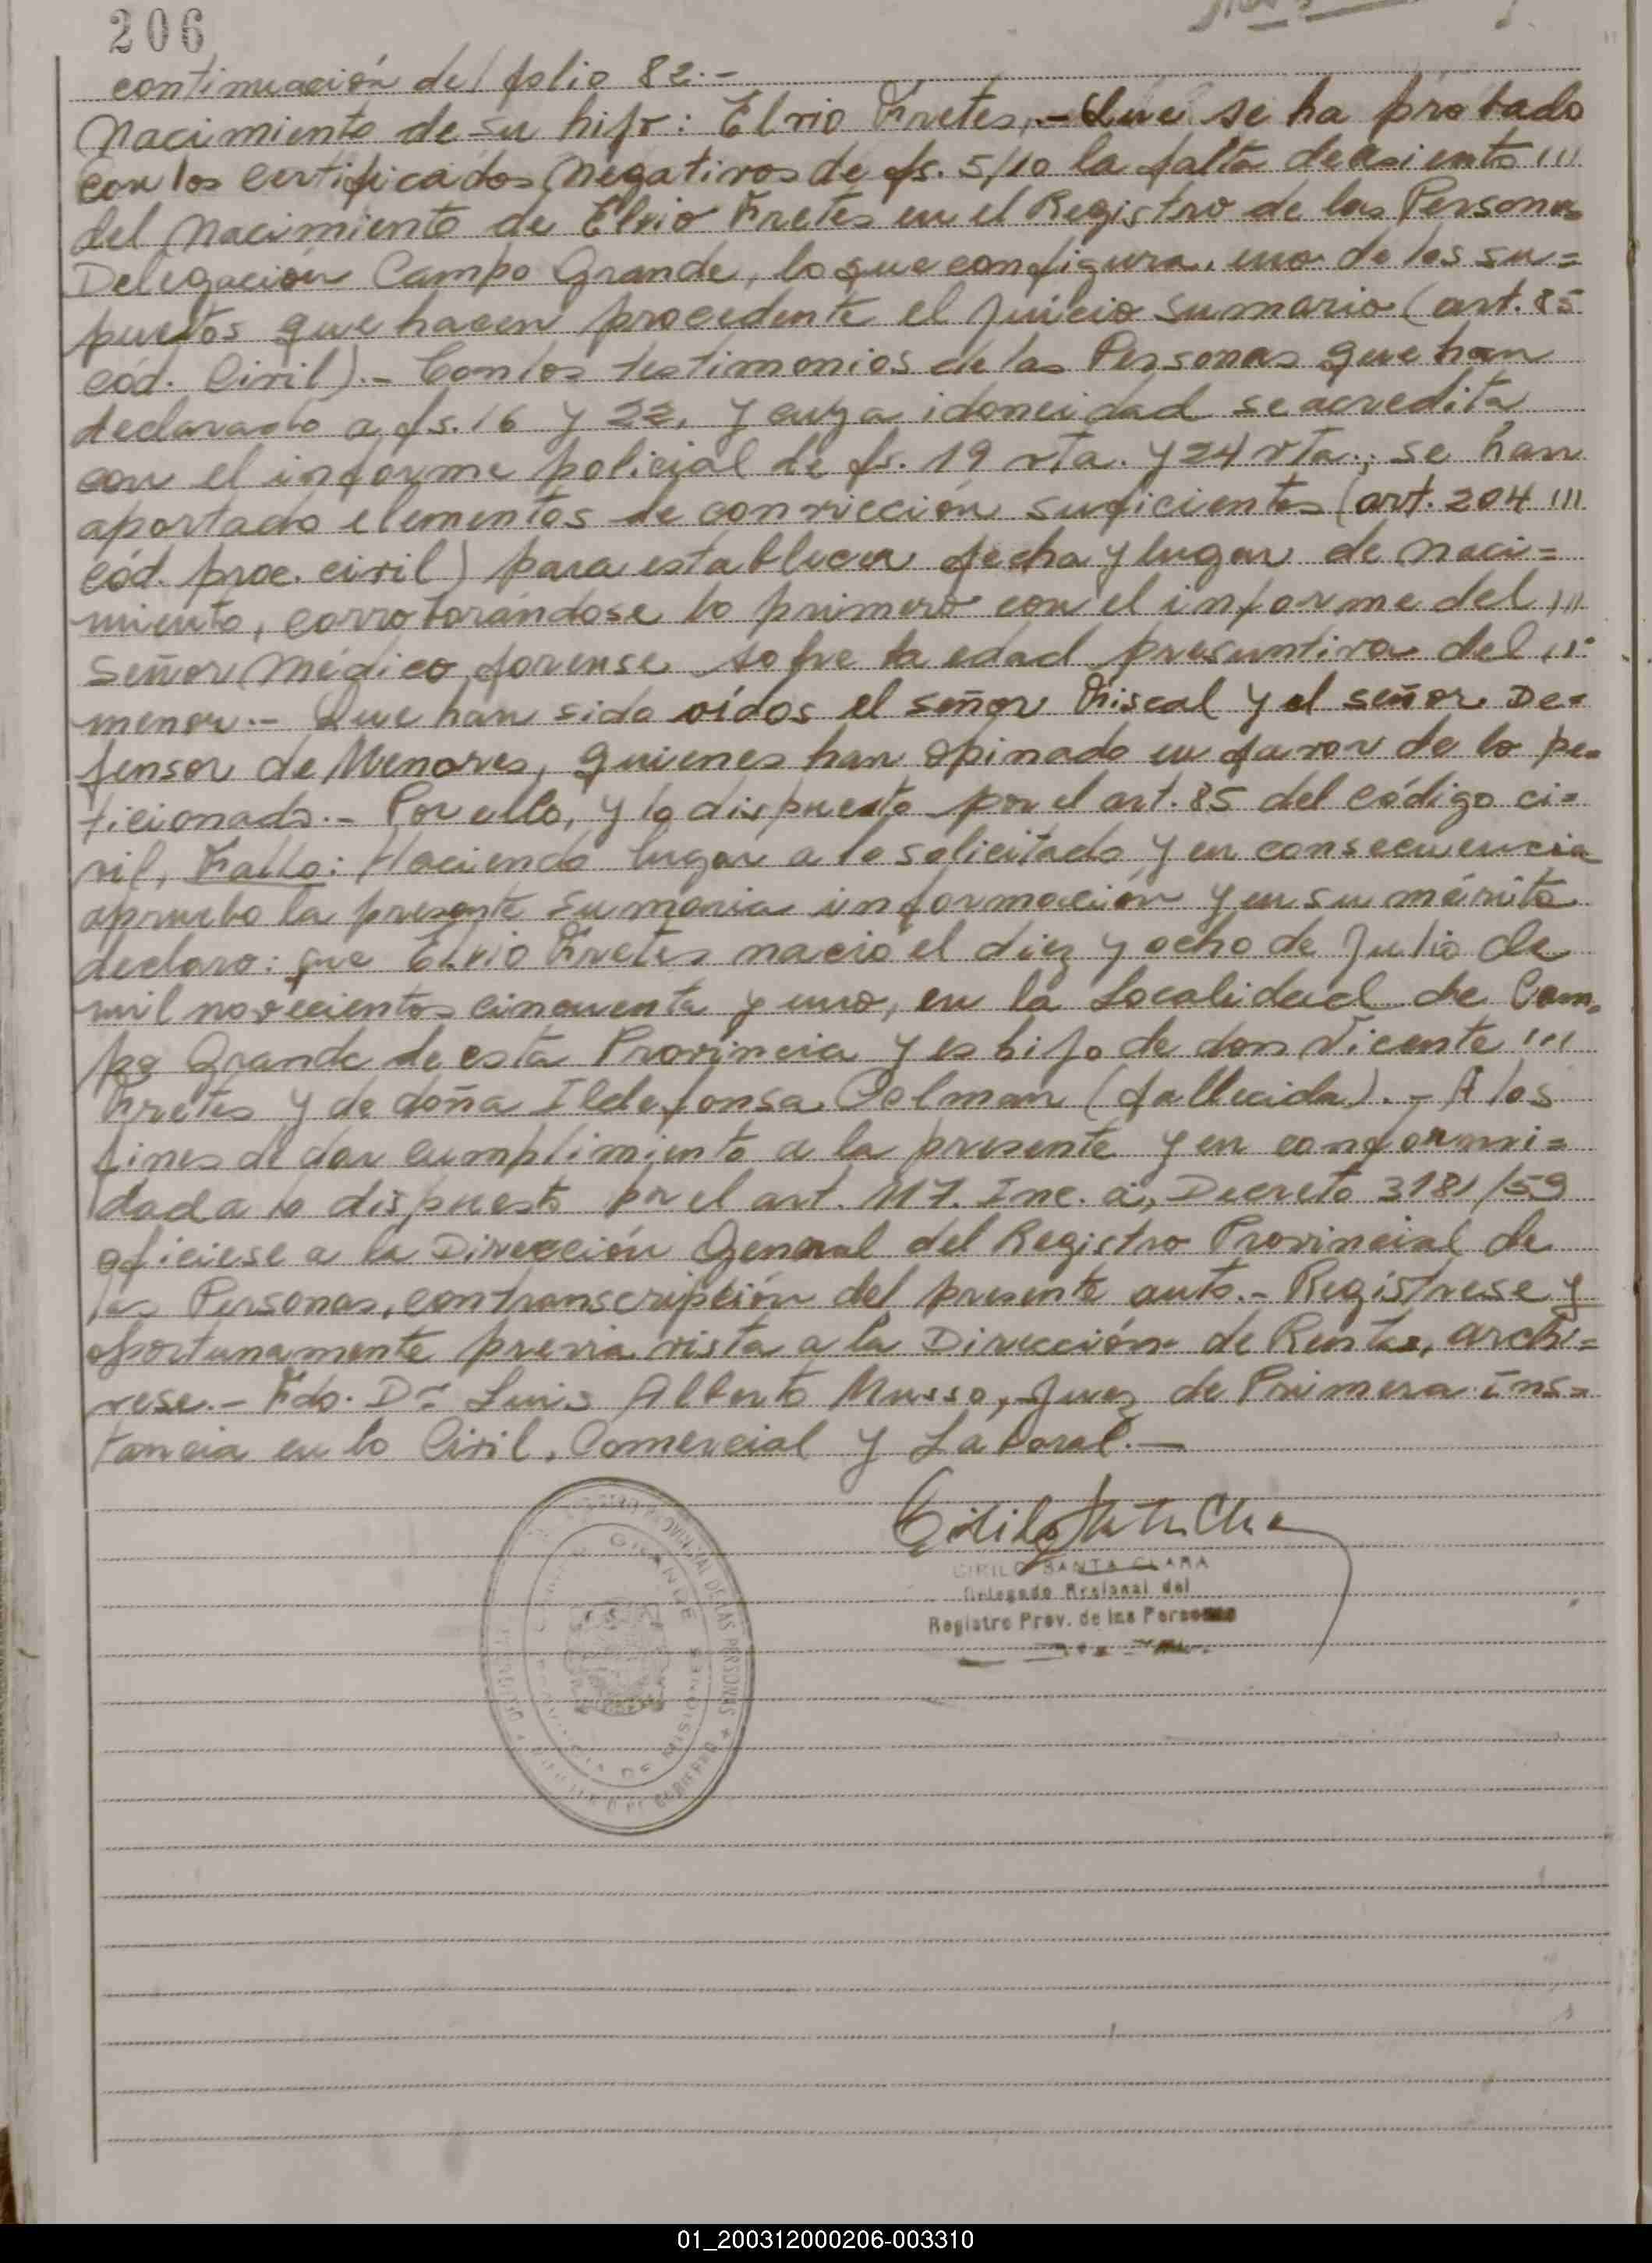 206
continuación del folio 82.-
Nacimiento de su hijo: Elvio Fretes,.- Que se ha probado
con los certificados Negativos de fs. 5/10 la falta de asiento ///
del Nacimiento de Elvio Fretes en el Registro de las Personas
Delegación Campo Grande, lo que configura, uno de los su=
puestos que hacen procedente el juicio sumario (art. 85
Cód. Civil).- Con los testimonios de las Personas que han
declarado a fs. 16 y 22, y cuya idoneidad se acredita
con el informe policial de fs. 19 vta. y 24 vta.; se han
aportado elementos de convicción suficientes (art. 204 ///
Cód. proc. civil) para establecer fecha y lugar de naci=
miento, corroborándose lo primero con el informe del ///
Señor Médico forense sobre la edad presuntiva del ///
menor.- Que han sido oídos el señor Fiscal y el señor De=
fensor de Menores, quienes han opinado en favor de lo pe=
ticionado.- Por ello, y lo dispuesto por el art. 85 del código ci=
vil, Fallo: Haciendo lugar a lo solicitado y en consecuencia
apruebo la presente sumaria información y en su mérito
declaro: que Elvio Fretes nació el diez y ocho de Julio de
mil novecientos cincuenta y uno, en la Localidad de Cam=
po Grande de esta Provincia y es hijo de don Vicente ///
Fretes y de doña Ildefonsa Colman (fallecida).- A los
fines de dar cumplimiento a la presente y en conformi=
dad a lo dispuesto por el art. 117. Inc. a, Decreto 3181/59
oficiese a la Dirección General del Registro Provincial de
las Personas, con transcripción del presente auto.- Regístrese y
oportunamente previa vista a la Dirección de Rentas, archi=
vese.- Fdo. Dr. Luis Alberto Musso, Juez de Primera ins=
tancia en lo Civil, Comercial y Laboral.-
CIRILO SANTA CLARA
Delegado Regional del
Registro Prov. de las Personas
GRANDE
PROVINCIA DE MISIONES
REGISTRO PROVINCIAL DE LAS PERSONAS
MINISTERIO DE GOBIERNO
01_200312000206-003310